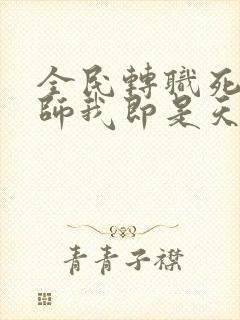 全民轉職死
師我即是天
青青子襟